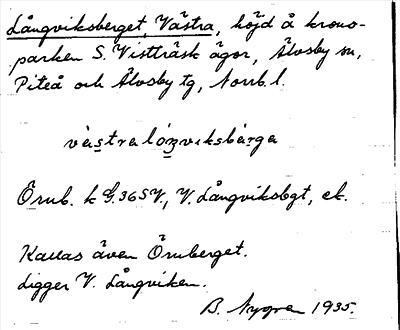 Långviksberget, Västra, höjd å krono-
parken S. Vistträsk ägor, Älvsby sn,
Piteå och Älvsby tg, Norrb. l.
västralóŋviksbärga
Örnb. k G. 36 SV., V. Långviksbgt, ek.
Kallas även Örnberget.
Ligger V. Långviken.
B. Nygren 1935.